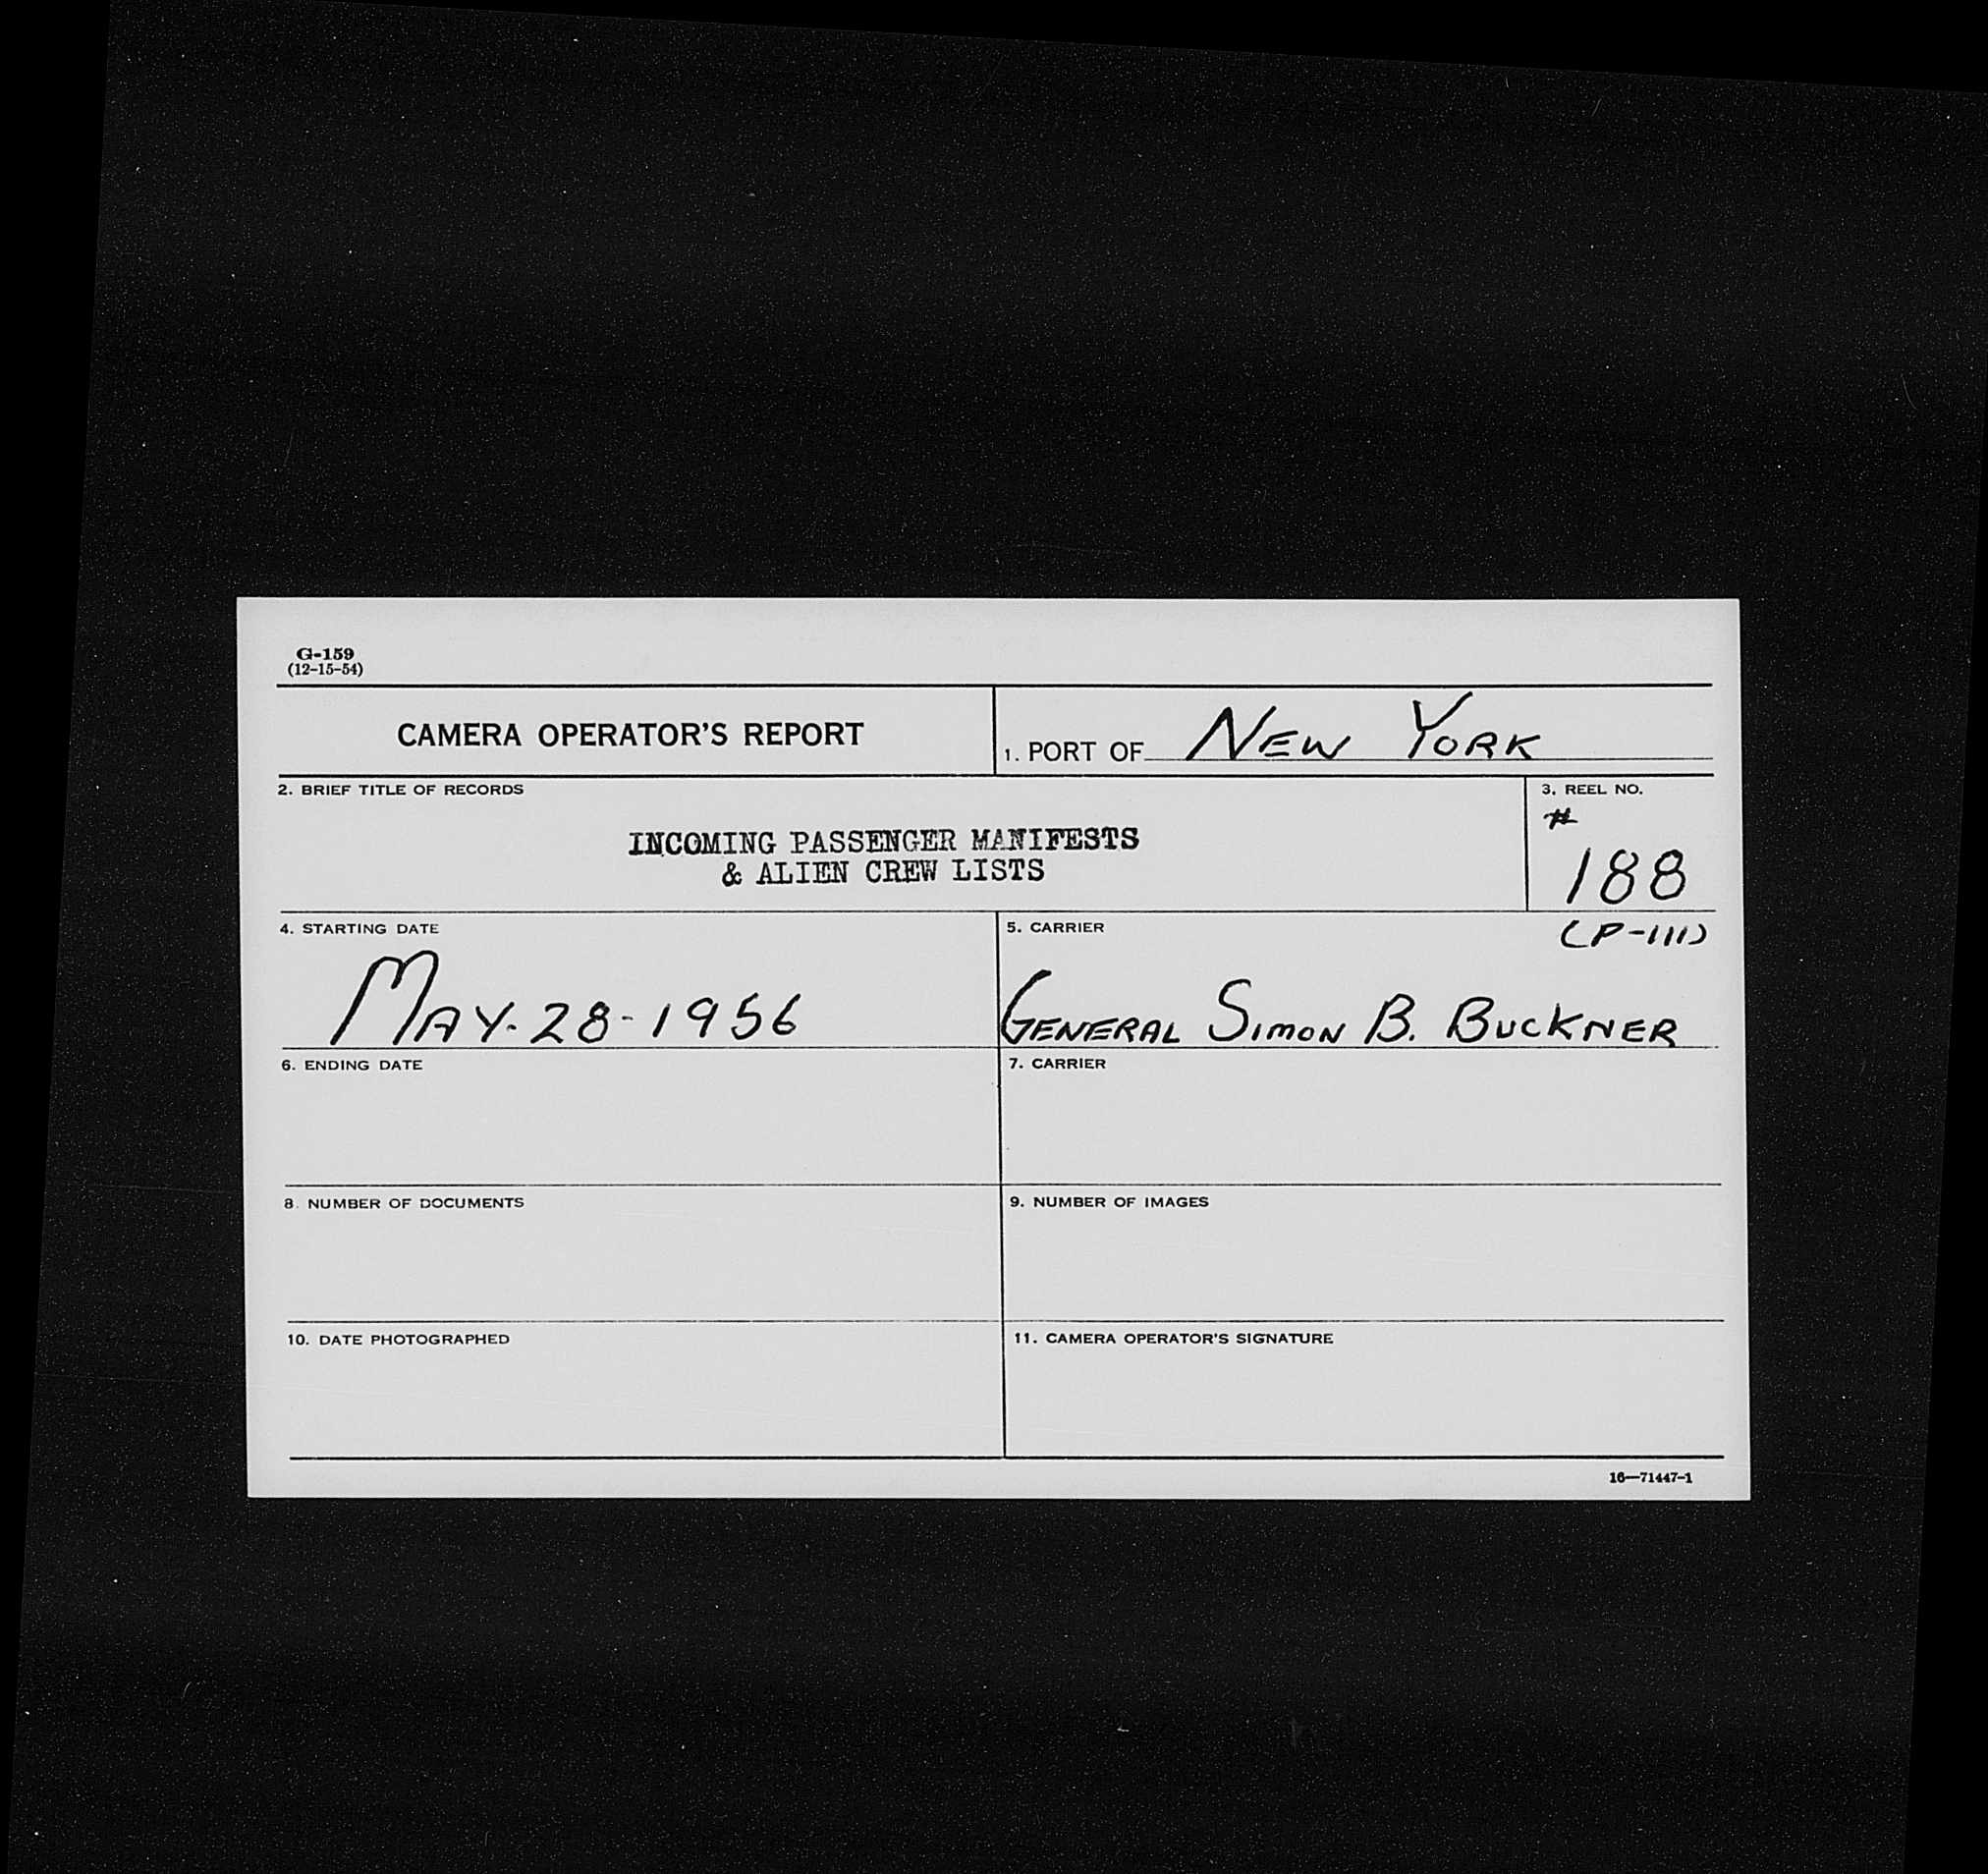 G-159
(12-15-54)
CAMERA OPERATOR'S REPORT
1. PORT OF NEW YORK
2. BRIEF TITLE OF RECORDS
INCOMING PASSENGER MANIFESTS
& ALIEN CREW LISTS
3. REEL NO.
#
188
(P-111)
4. STARTING DATE
MAY-28-1956
5. CARRIER
GENERAL SIMON B. BUCKNER
6. ENDING DATE
7. CARRIER
8. NUMBER OF DOCUMENTS
9. NUMBER OF IMAGES
10. DATE PHOTOGRAPHED
11. CAMERA OPERATOR'S SIGNATURE
16—71447-1